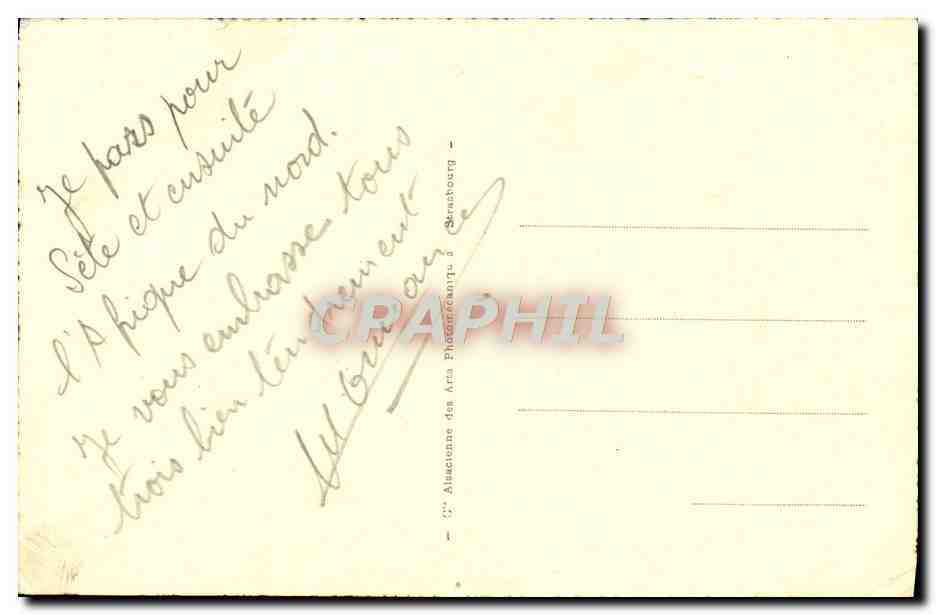 Je pars pour
Sète et ensuite
l'Afrique du nord.
Je vous embrasse tous
trois bien tendrement
— Cie Alsacienne des Arts Photomécaniques Strasbourg —
CRAPHIL